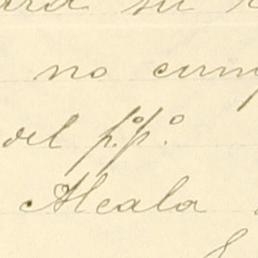 su
no cum
del p.º p.º
Alcala